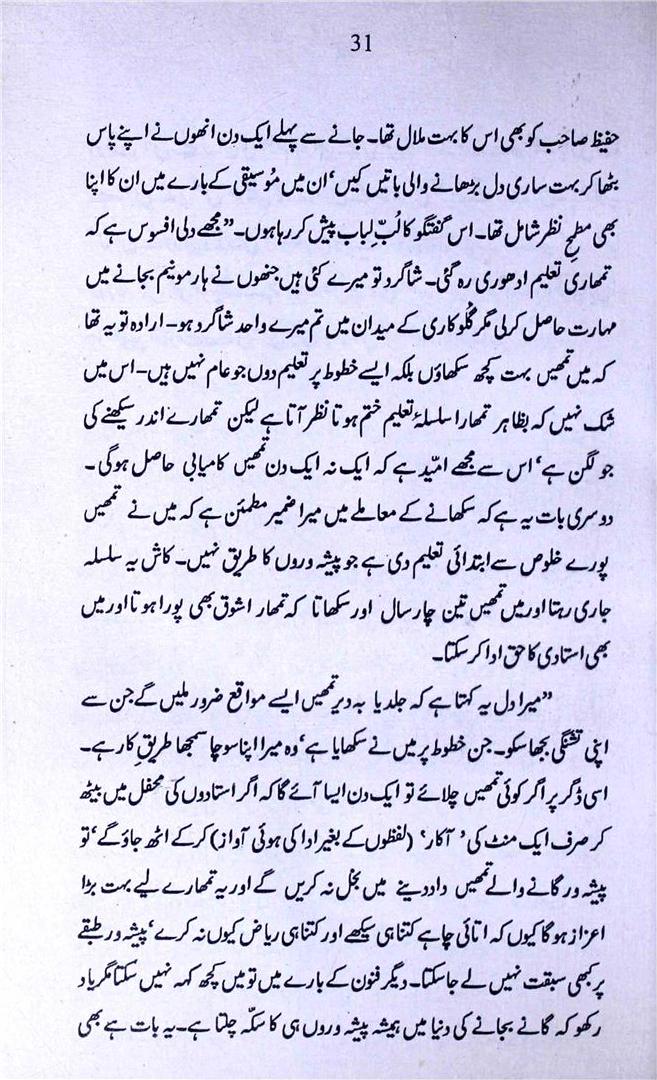 31
حفیظ صاحب کو بھی اس کا بہت ملال تھا۔ جانے سے پہلے ایک دن انھوں نے اپنے پاس
بٹھا کر بہت ساری دل بڑھانے والی باتیں کیں‘ ان میں مُوسیقی کے بارے میں ان کا اپنا
بھی مطمحِ نظر شامل تھا۔ اس گفتگو کا لُبِّ لباب پیش کر رہا ہوں۔ ”مجھے دلی افسوس ہے کہ
تمھاری تعلیم ادھوری رہ گئی۔ شاگرد تو میرے کئی ہیں جنھوں نے ہارمونیم بجانے میں
مہارت حاصل کرلی مگر گُلوکاری کے میدان میں تم میرے واحد شاگرد ہو۔ ارادہ تو یہ تھا
کہ میں تمھیں بہت کچھ سکھاؤں بلکہ ایسے خطوط پر تعلیم دوں جو عام نہیں ہیں۔ اس میں
شک نہیں کہ بظاہر تمھارا سلسلۂ تعلیم ختم ہوتا نظر آتا ہے لیکن تمھارے اندر سیکھنے کی
جو لگن ہے‘ اس سے مجھے امّید ہے کہ ایک نہ ایک دن تمھیں کامیابی حاصل ہوگی۔
دوسری بات یہ ہے کہ سکھانے کے معاملے میں میرا ضمیر مطمئن ہے کہ میں نے تمھیں
پورے خلوص سے ابتدائی تعلیم دی ہے جو پیشہ وروں کا طریق نہیں۔ کاش یہ سلسلہ
جاری رہتا اور میں تمھیں تین چار سال اور سکھاتا کہ تمھارا شوق بھی پورا ہوتا اور میں
بھی استادی کا حق ادا کر سکتا۔
”میرا دل یہ کہتا ہے کہ جلد یا بہ دیر تمھیں ایسے مواقع ضرور ملیں گے جن سے
اپنی تشنگی بجھا سکو۔ جن خطوط پر میں نے سکھایا ہے‘ وہ میرا اپنا سوچا سمجھا طریقِ کار ہے۔
اسی ڈگر پر اگر کوئی تمھیں چلائے تو ایک دن ایسا آئے گا کہ اگر استادوں کی محفل میں بیٹھ
کر صرف ایک منٹ کی ’آکار‘ (لفظوں کے بغیر ادا کی ہوئی آواز) کرکے اٹھ جاؤ گے‘ تو
پیشہ ور گانے والے تمھیں داد دینے میں بخل نہ کریں گے اور یہ تمھارے لیے بہت بڑا
اعزاز ہو گا کیوں کہ اتائی چاہے کتنا ہی سیکھے اور کتنا ہی ریاض کیوں نہ کرے‘ پیشہ ور طبقے
پر کبھی سبقت نہیں لے جا سکتا۔ دیگر فنون کے بارے میں تو میں کچھ کہہ نہیں سکتا مگر یاد
رکھو کہ گانے بجانے کی دنیا میں ہمیشہ پیشہ وروں ہی کا سکّہ چلتا ہے۔ یہ بات ہے بھی